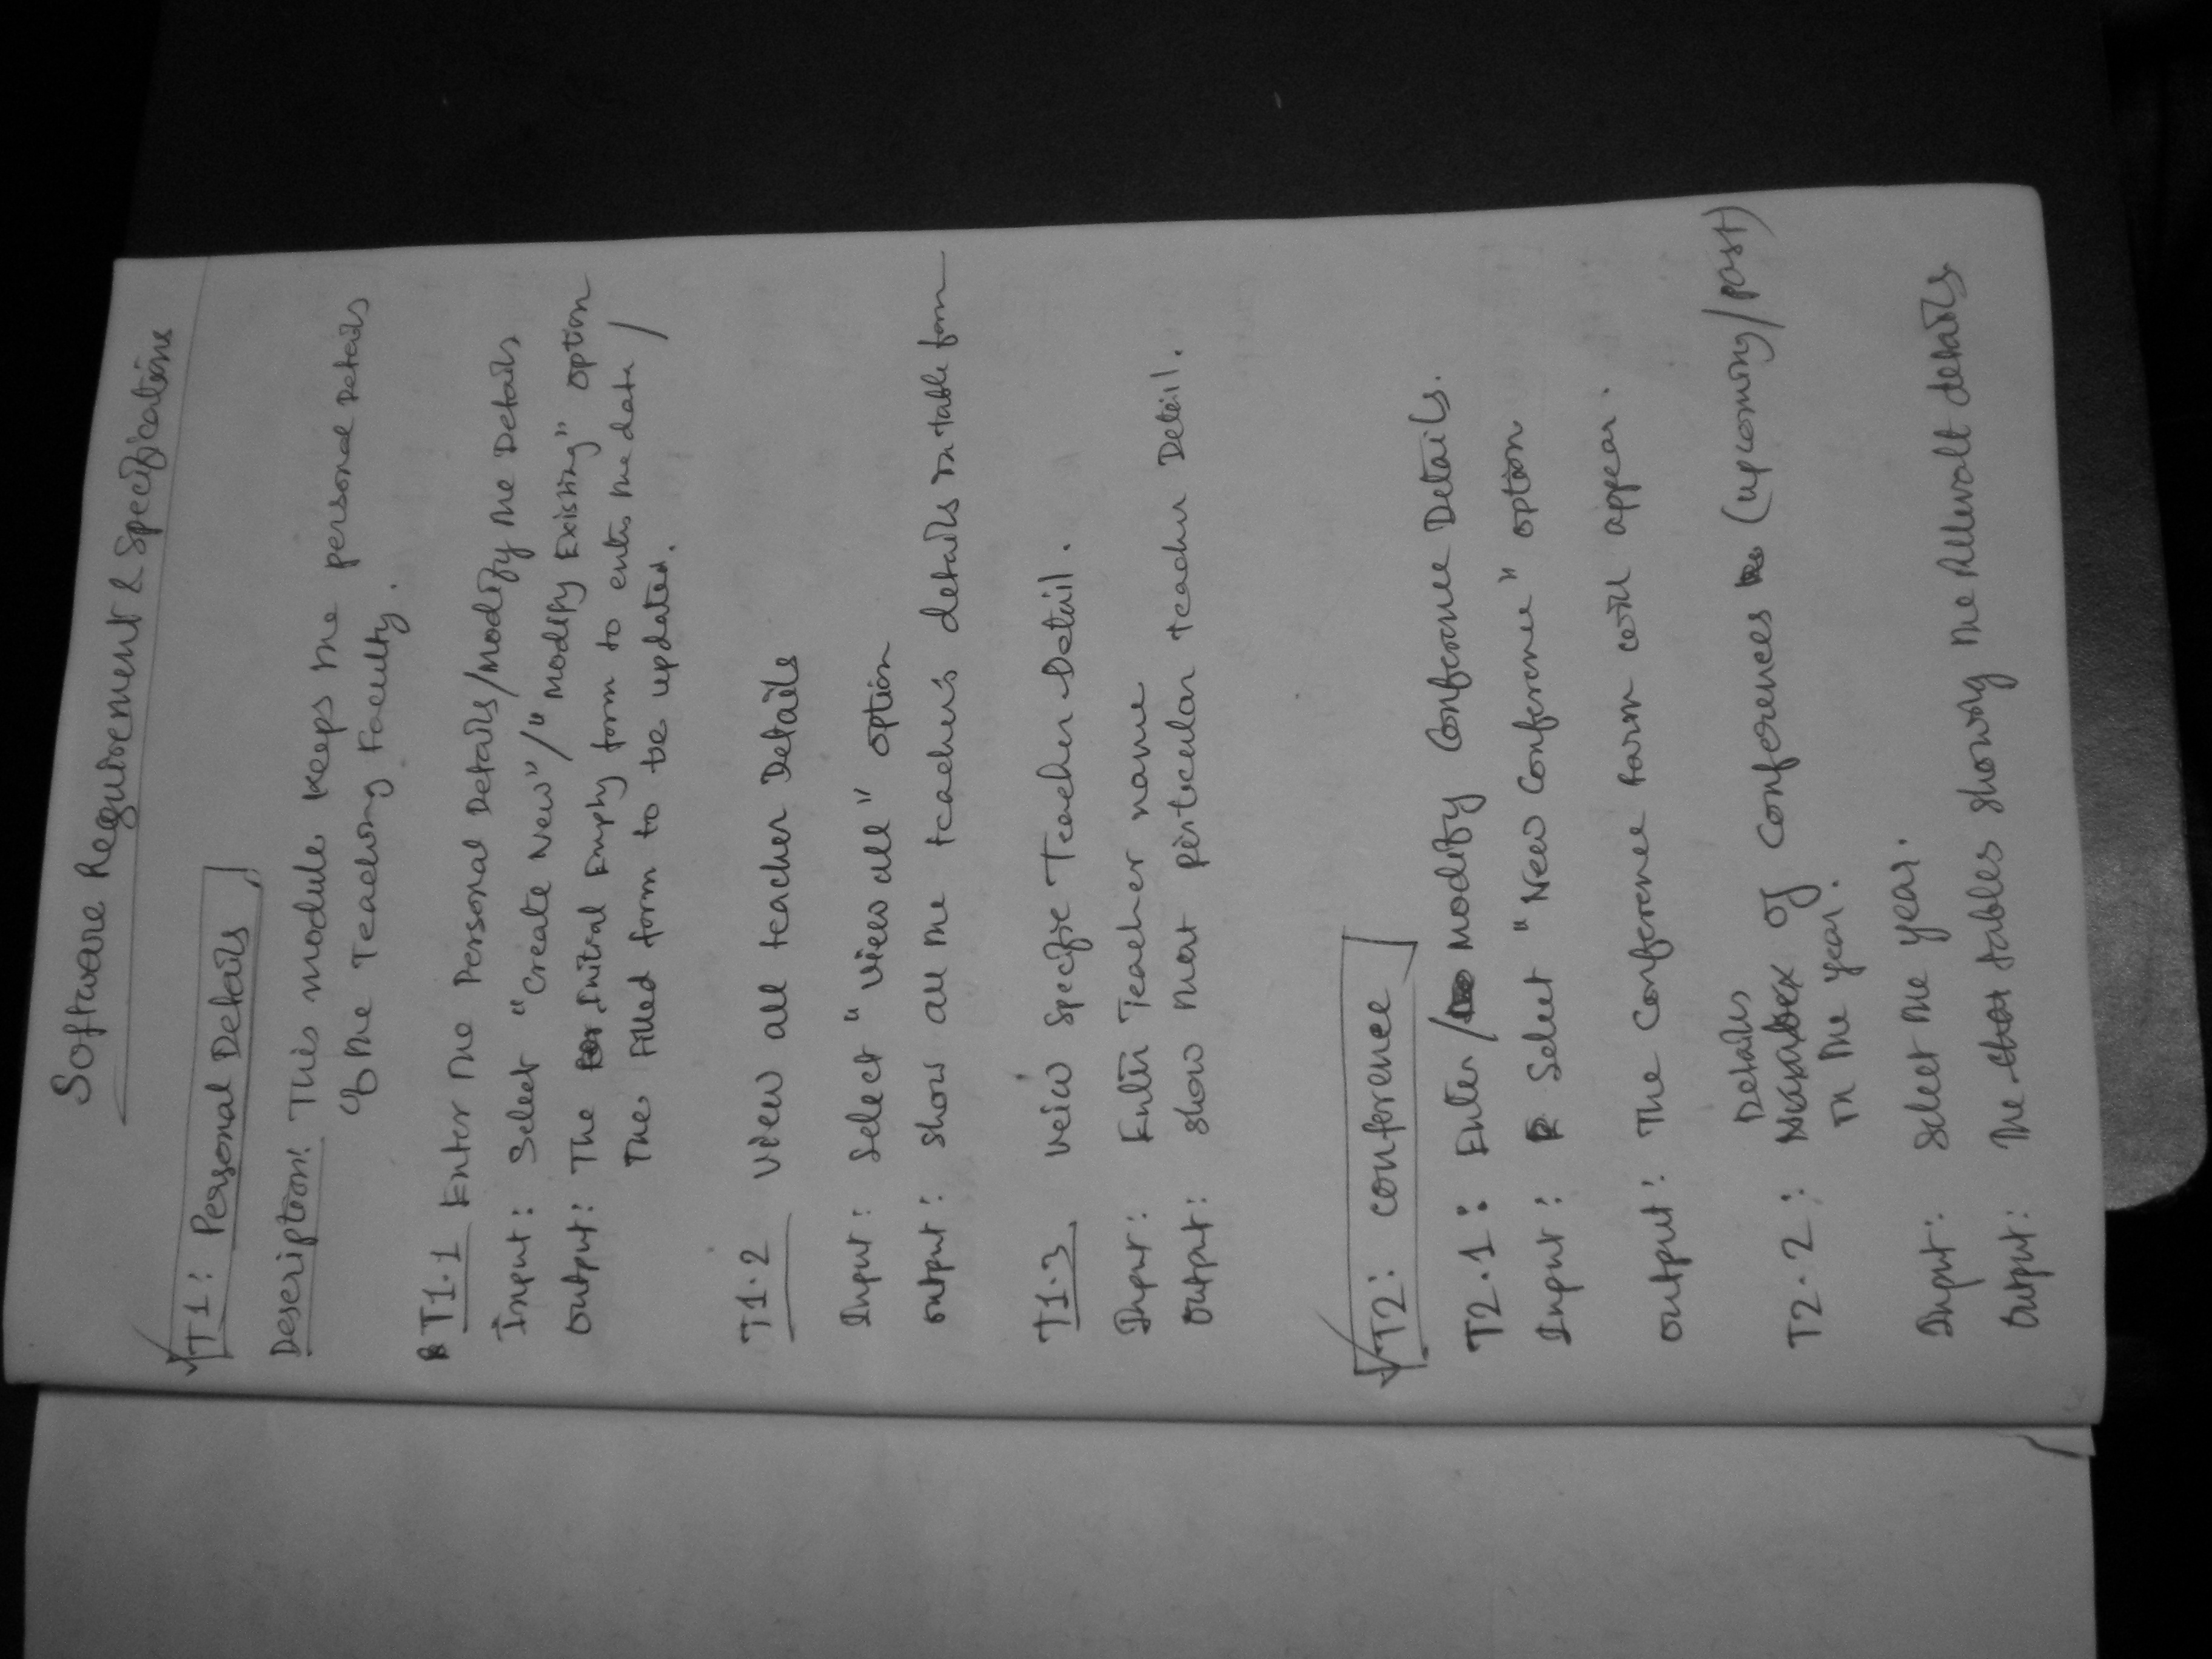 Software Requirement & Specifications
T1: Personal Details
Description: This module keeps the personal Details
of the Teaching Faculty.
T1.1 Enter the Personal Details/Modify the Details
Input: Select "Create New"/"Modify Existing" option
Output: The Initial Empty form to enter the data /
The Filled form to be updated.
T1.2 View all teacher Details
Input: Select "View all" option
Output: Show all the teachers details in table form
T1.3 Veiw Specific Teacher Detail.
Input: Enter Teacher name
Output: Show that perticular teacher Detail.
T2: Conference
T2.1: Enter/Modify Conference Details.
Input: Select "New Conference" option
Output: The Conference form will appear.
T2.2: Details of Conferences (upcoming/past)
in the year.
Input: Select the year.
Output: The tables showing the Relevalt details